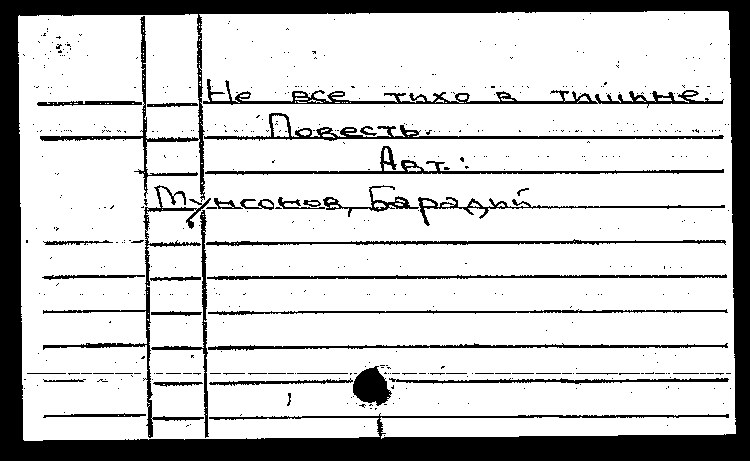 Не все тихо в тишине.
Повесть.
Авт.:
Мунсонов, Барадий